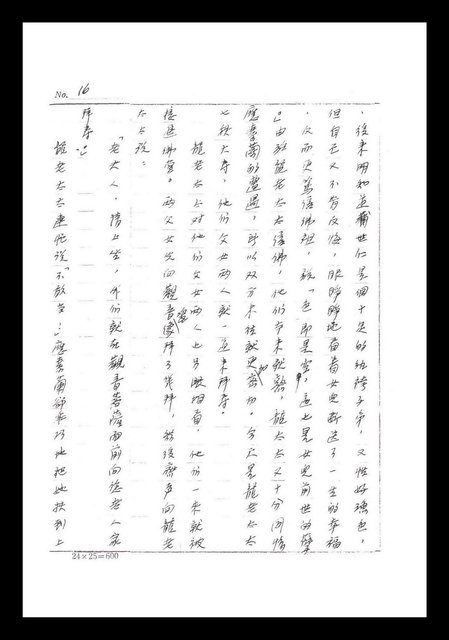 No. 16
，後來明知道薌世仁是個十足的紈袴子弟，又性好漁色，
但自己又不肯反悔，眼睜睜地看着女兒斷送了一生的幸福
，反而更篤信佛祖，說「色即是空」，這也是女兒前世的孽
。」由於龍老太太信佛，他們本來就熟，龍太太又十分同情
應素蘭的遭遇，所以双方來往就更加密切。今天是龍老太太
七秩大壽，他們父女兩人就一道來拜壽。
龍老太太對他們父女兩人上另眼相看，他們一來就被
接進佛堂。兩父女先向觀音像拜了幾拜，然後齊聲向龍老
太太說：
「老夫人，請上坐，我們就在觀音菩薩面前向您老人家
拜壽。」
龍老太太連忙說「不敢當！」應素蘭卻乖巧地把她扶到上
24×25＝600